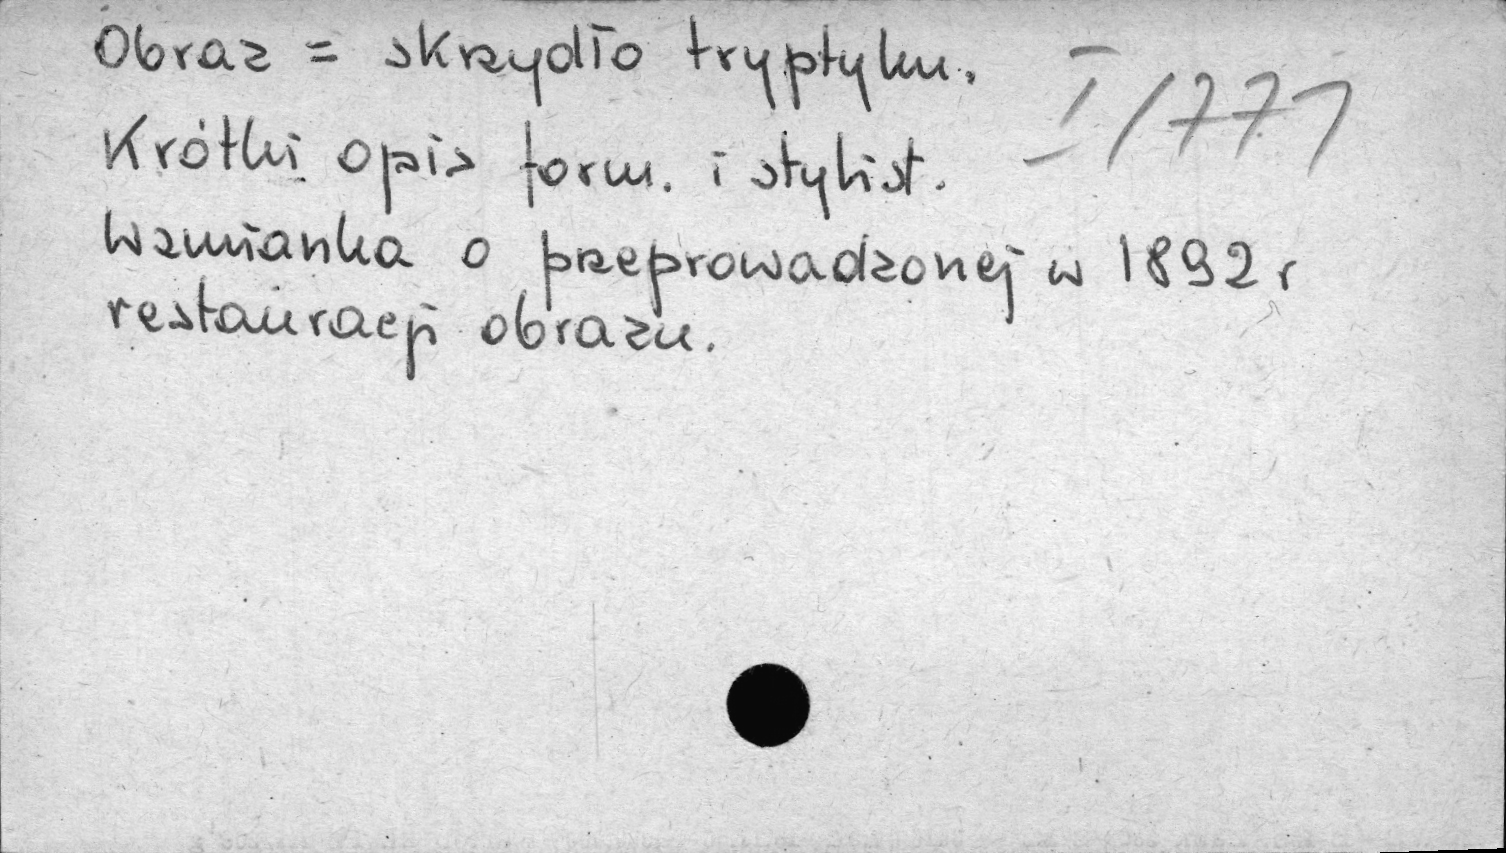 Obraz = skrzydło tryptyku.
I/777
Krótki opis form. i stylist.
Wzmianka o przeprowadzonej w 1892 r
restauracji obrazu.